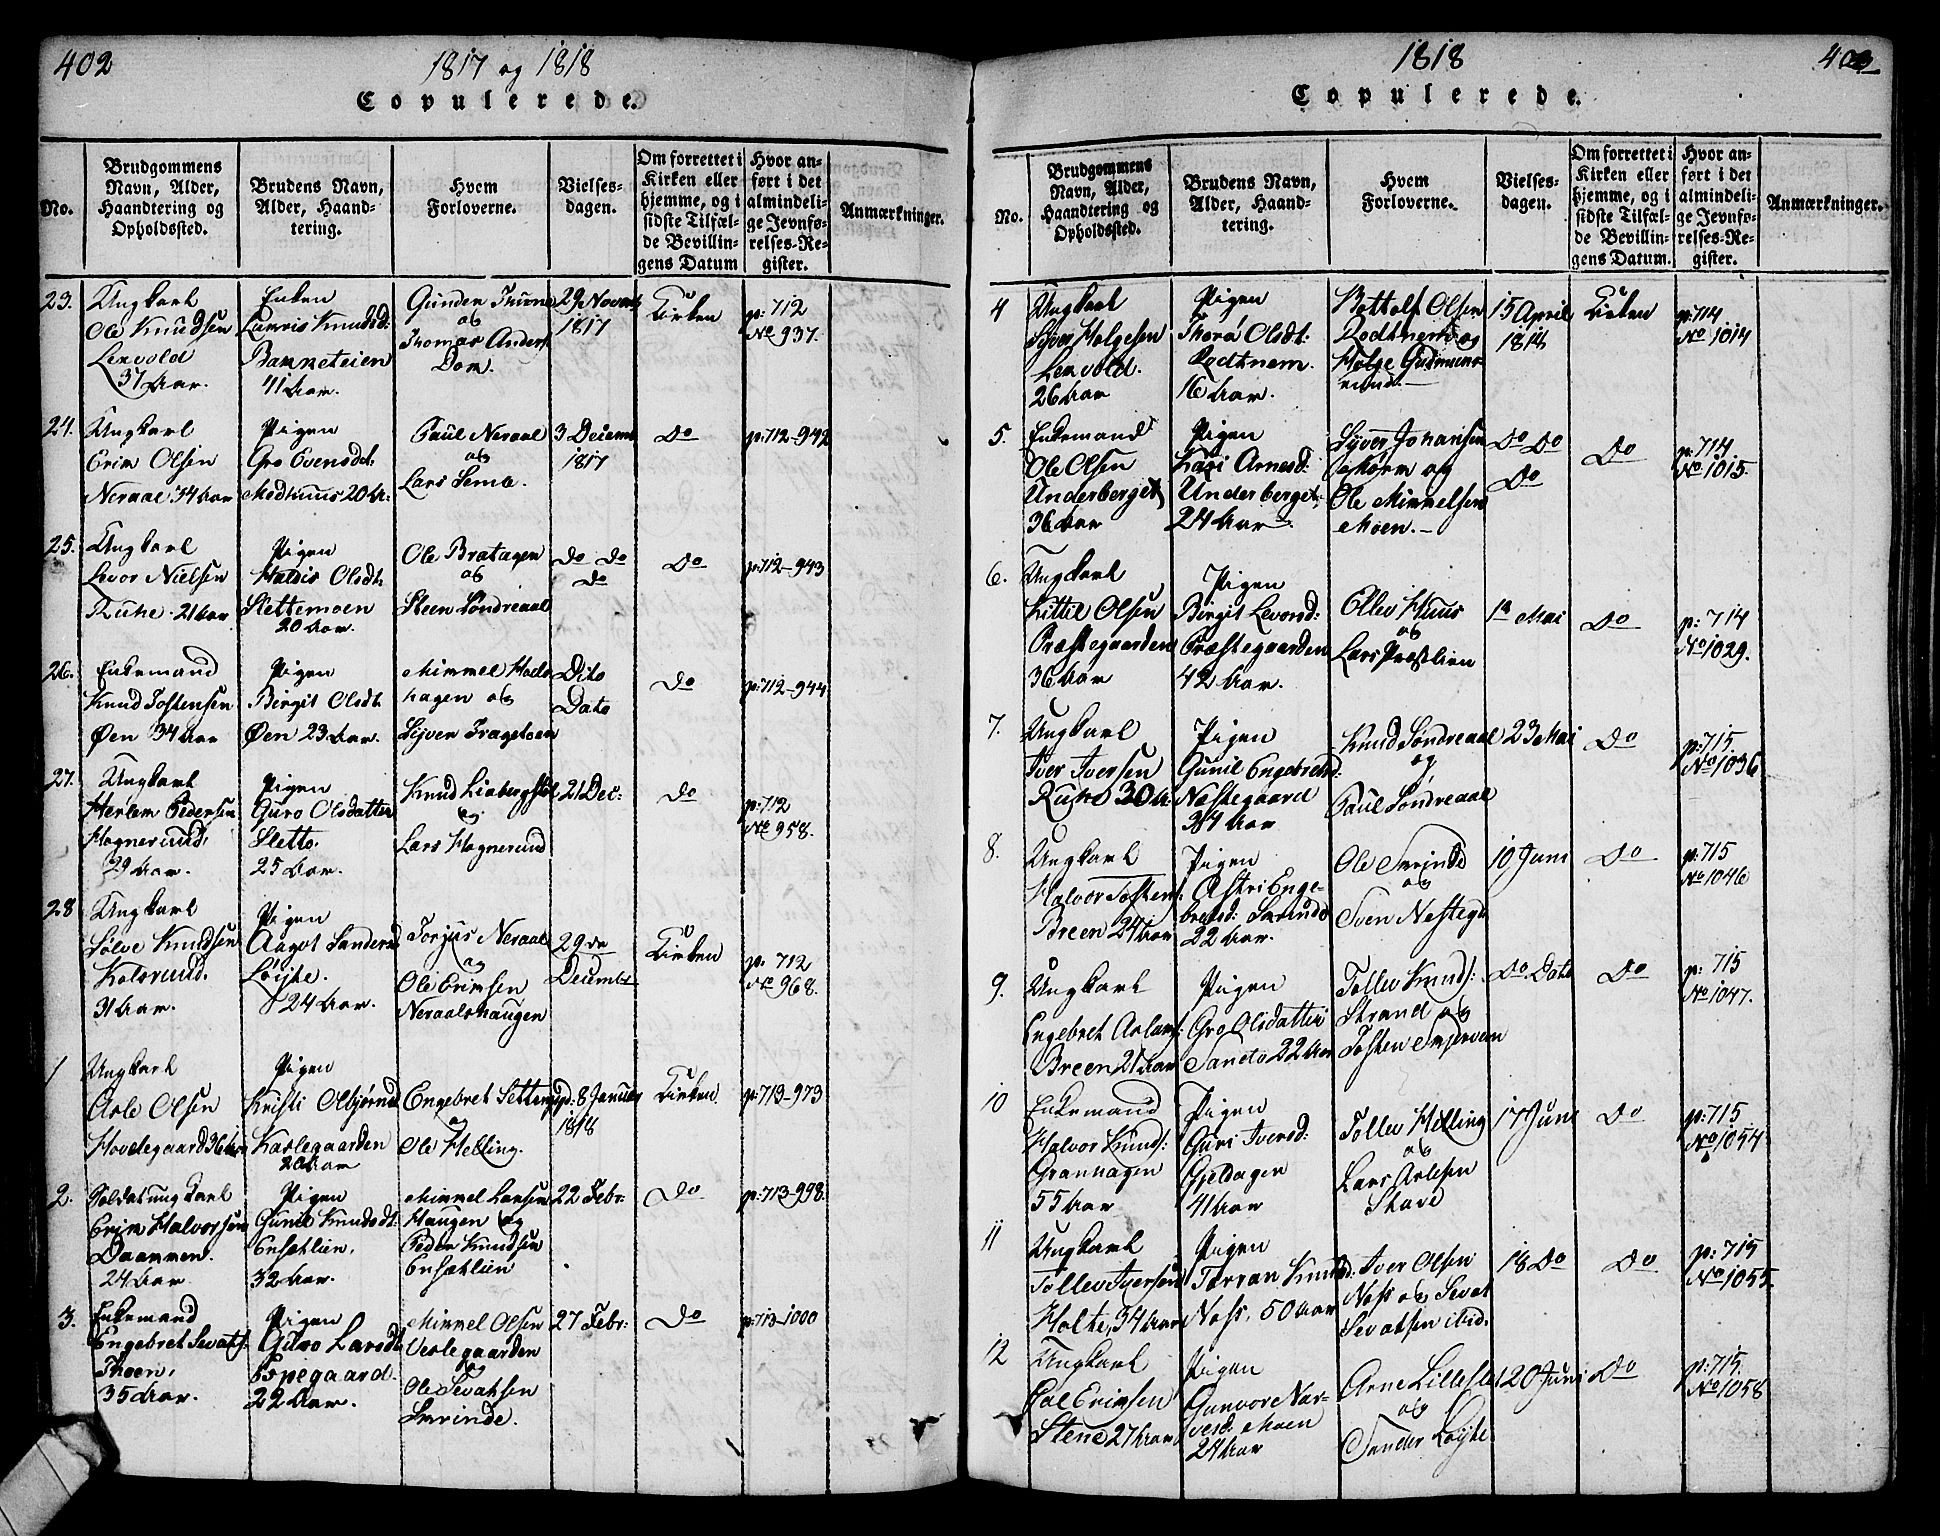 402
1817 og 1818
Copulerede.
No.
Brudgommens Navn, Alder, Haandtering og Opholdssted.
Brudens Navn, Alder, Haandtering.
Hvem Forloverne.
Vielsesdagen.
Om forrettet i Kirken eller hjemme, og i sidste Tilfælde Bevillingens Datum
Hvor anført i det almindelige Jevnførelses-Register.
Anmærkninger.
23.
Ungkarl
Ole Knudsen
Lenvold
37 Aar.
Enken
Knudsd:
Banneteien
41 Aar.
Gunder
og
Thomas Anders
Dom.
29 Novemb
1817
Kirken
p: 712
No 937.
24.
Ungkarl
Erik Olsen
Neraal 34 Aar
Pigen
Gro Evensdt:
Medhuus 20 A:
Paul Neraal
og
Lars Semo.
3 Decemb
1817
Do
p: 712-942
25.
Ungkarl
Levor Nielsen
Ruhe. 21 Aar
Pigen
Haldis Olsdt.
Slettemoen
20 Aar.
Ole Bratagen
og
Steen Søndreaal
Do Do
Do
Do
p: 712-943
26.
Enkemand
Knud Tostensen
Øen 34 Aar
Pigen
Birgit Olsdt.
Øen 23 Aar.
Mikkel
hagen og
Dito
Dato
Do
p: 712-944
27.
Ungkarl
Herlem Pedersen
Hognerud.
29 Aar.
Pigen
Guro Olsdatter
Sletto.
25 Aar.
Knud
og
Lars Hognerud
21 Dec:
Do
p: 712
No 958.
28
Ungkarl
Sølve Knudsen
Kolsrud.
31 Aar.
Pigen
Aagot Sandersd
Løijte.
24 Aar.
Torjus Neraal
og
Ole Eriksen
Neraalshaugen
29de
Decembr
Kirken
p. 712
No 968.
1
Ungkarl
Asle Olsen
Hovdegaard 36 Aar
Pigen
Kristi Asbjørnsd
Karlegaarden
20 Aar
Engebret
og
Ole Helling.
8 Januar
1818
Kirken
p: 713-973
2.
Soldat ungkarl
Erik Halvorsen
24 Aar
Pigen
Gunil Knudsdt:
Ensætlien.
32 Aar.
Mikkel Larsen
Haugen og
Peder Knudsen
Ensætlien
22 Febr:
Do
p: 713-998.
3.
Enkemand
Engebret Sevats:
Thoen.
35 Aar.
Pigen
Guro Larsdt.
Espegaard.
22 Aar.
Mikkel Olsen
Veslegaarden
og
Ole Sevatsen
Smrinde.
27 Febr:
Do
p: 713-1000
1818
Copulerede.
No.
Brudgommens Navn, Alder, Haandtering og Opholdssted.
Brudens Navn, Alder, Haandtering.
Hvem Forloverne.
Vielsesdagen.
Om forrettet i Kirken eller hjemme, og i sidste Tilfælde Bevillingens Datum.
Hvor anført i det almindelige Jevnførelses-Register.
Anmærkninger.
4
Ungkarl
Syver Helgesen
Lenvold.
26 Aar
Pigen
Thora Olsdt:
Rodtnem.
16 Aar.
Bottolf Olsen
Rodtnem og
Helge
15 April
1818
Kirken
p: 714
No 1014
5.
Enkemand
Ole Olsen
Underberget
36 Aar
Pigen
Kari Arnesd:
Underberget:
24 Aar.
Syver Johansen
Mørk og
Ole Mikkelsen
Moen.
Do Do
Do
Do
p: 714
No 1015.
6.
Ungkarl
Kittil Olsen
Præstegaarden
36 Aar
Pigen
Birgit Levorsd:
Præstegaarden
42 Aar.
Ellev Huus
og
Lars Præstlien
18 Mai
Do
p: 714
No 1029.
7.
Ungkarl
Iver Iversen
Ruhe 30 A:
Pigen
Gunil Engebretsd:
Nestegaard
34 Aar
Knud Søndreaal
og
Paul Søndreaal
23 Mai
Do
p: 715.
No 1036
8.
Ungkarl
Halvor Tostens:
Breen 24 Aar
Pigen
Astri Engebretsd:
22 Aar.
Ole Smrinde
og
Sven Nestega
10 Juni
Do
p: 715
No 1046
9.
Ungkarl
Engebret Aslags:
Breen 21 Aar
Pigen
Gro Olsdatter
Sancto 22 Aar
Tollev Knuds:
Strand og
Tosten
Do Dato
Do
p: 715
No 1047.
10
Enkemand
Halvor Knuds:
Granhagen
55 Aar
Pigen
Guri Iversd:
Gjeldagen
41 Aar
Tollev Helling
og
Lars Arlesen
Stave
17 Juni
Do
p: 715
No 1054
11
Ungkarl
Tollev Iversen
Holte, 34 Aar
Pigen
Torran Knudsd:
Ness, 50 Aar
Iver Olsen
Ness og Sevat
Sevatsen ibid.
18 Do
Do
p: 715
No 1055.
12
Ungkarl
Eriksen
Stene 27 Aar
Pigen
Gunvore Narvesd: Moen
24 Aar
Arne Lillesle
og
Sander Løijte
20 Juni
Do
p: 715.
No 1058